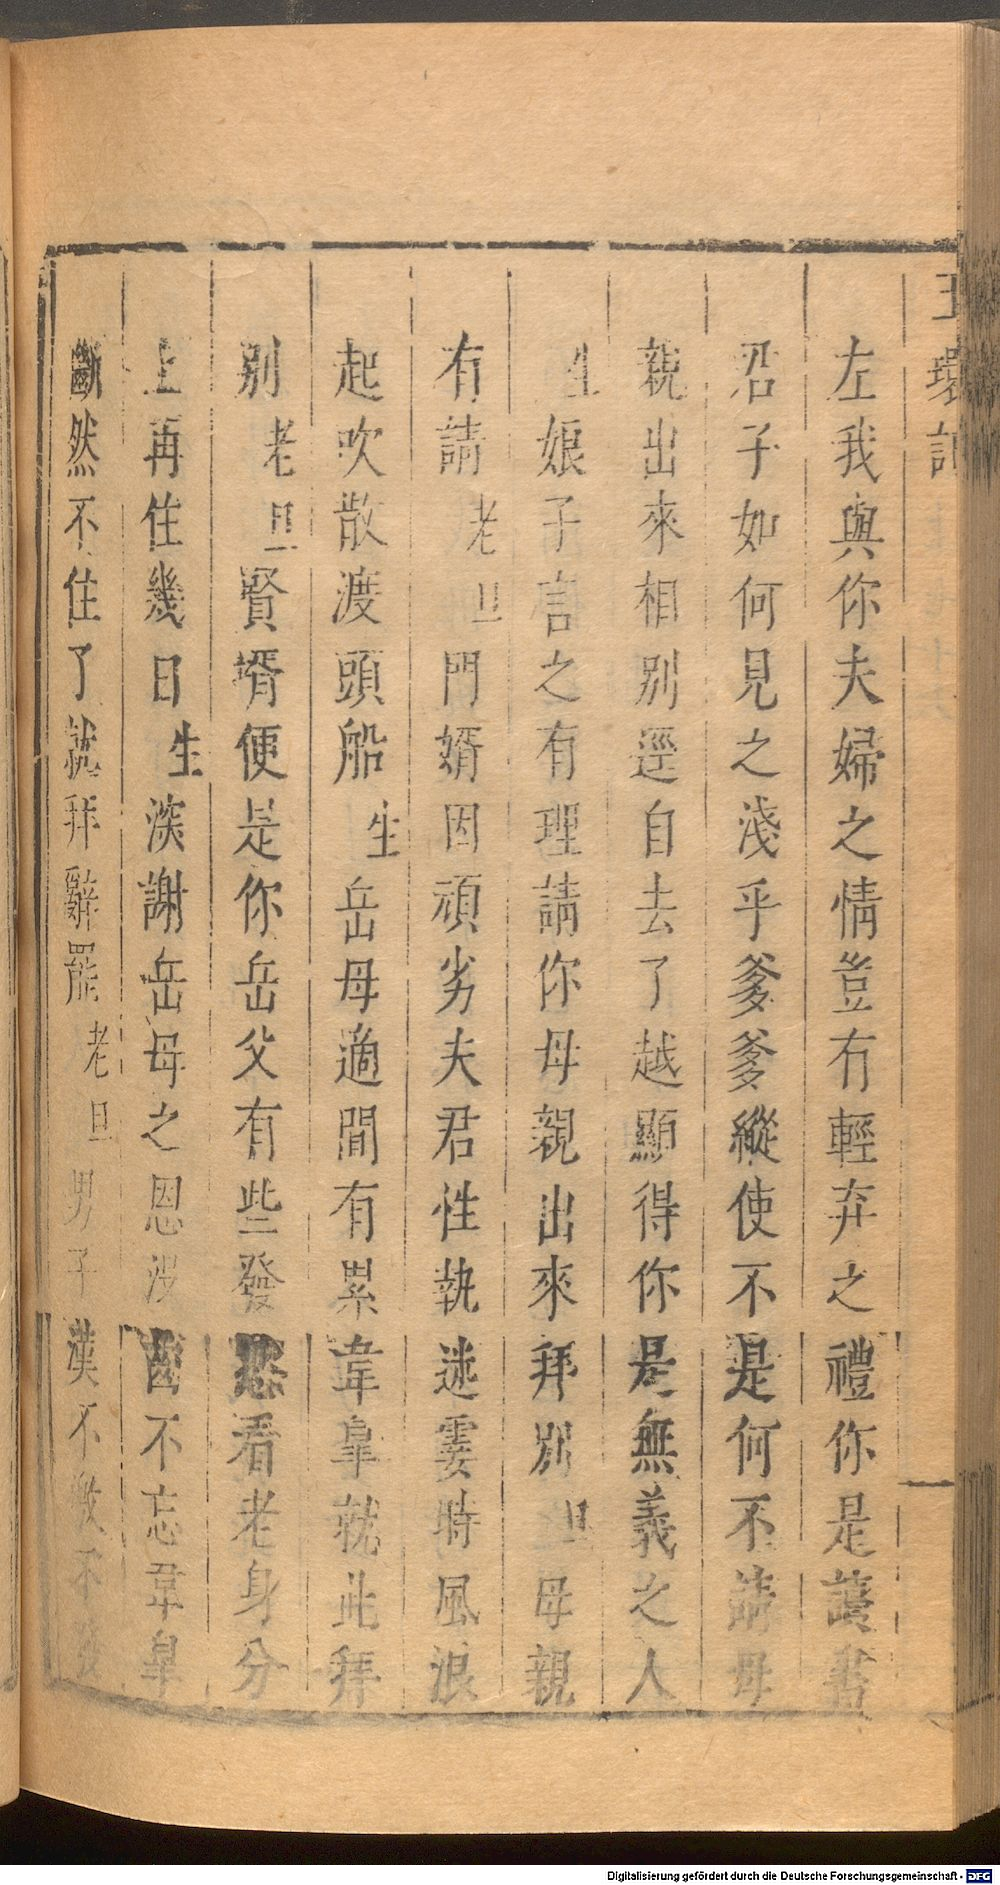 玉環記
左我與你夫婦之情豈有輕弃之禮你是讀書
君子如何見之淺乎爹爹縱使不是何不請母
親出來相別逕自去了越顯得你是無義之人
生娘子言之有理請你母親出來拜別旦母親
有請老旦門婿因頑劣夫君性執迷霎時風浪
起吹散渡頭船生岳母適間有累韋皐就此拜
別老旦賢壻便是你岳父有些發怒看老身分
上再住幾日生深謝岳母之恩沒齒不忘韋皐
斷然不住了就拜辭罷老旦男子漢不激不發
Digitalisierung gefördert durch die Deutsche Forschungsgemeinschaft - DFG